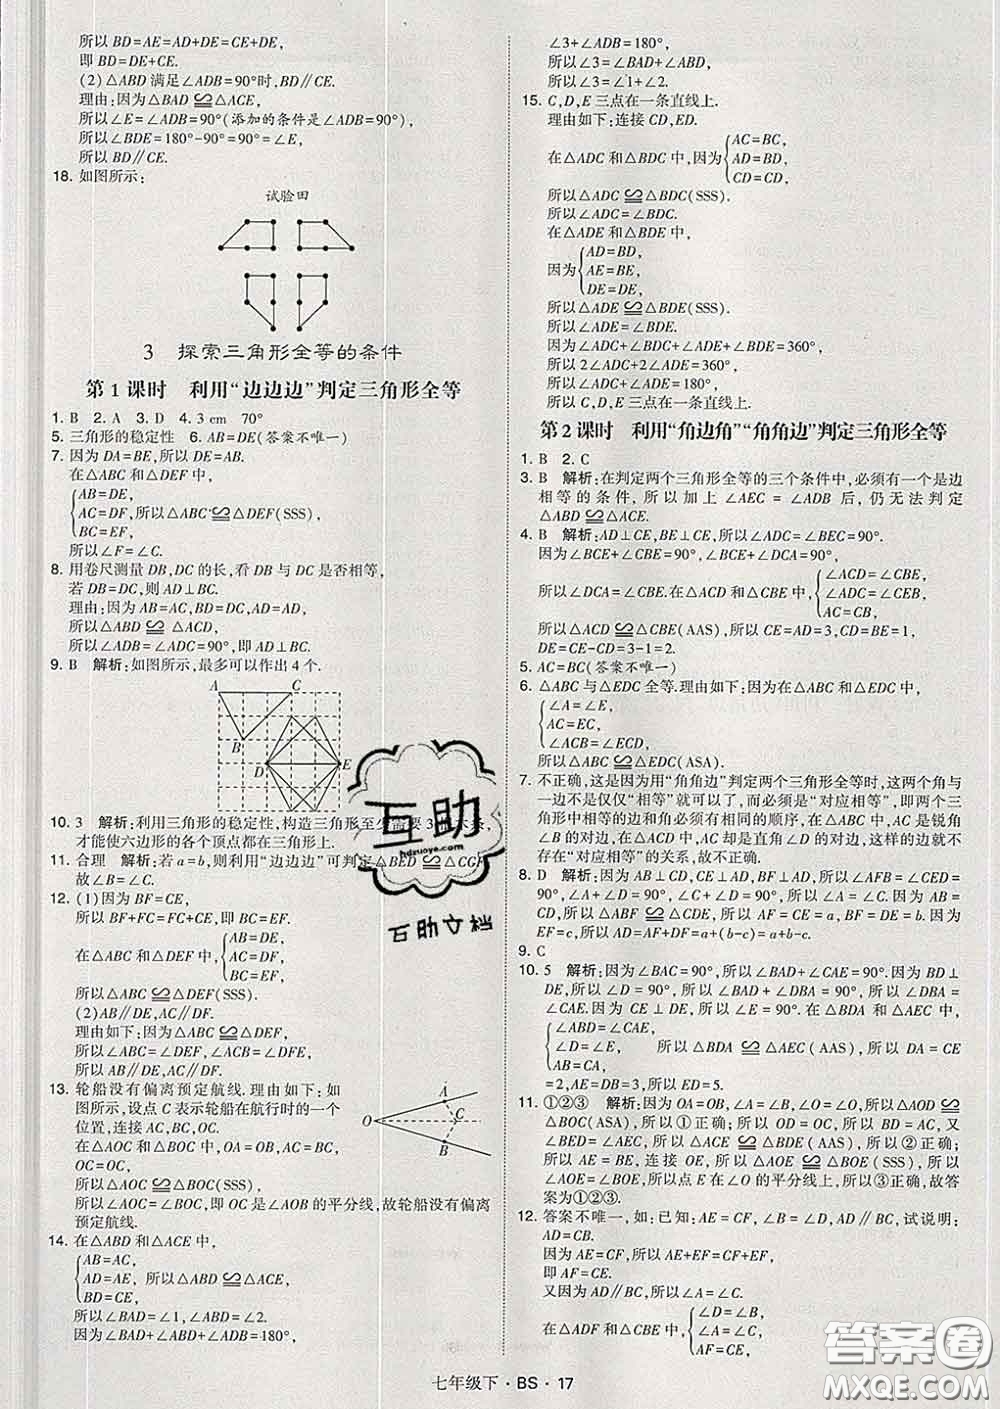 所以 BD=AE=AD+DE=CE+DE,
即 BD=DE+CE.
(2)△ABD 满足∠ADB=90°时,BD∥CE.
理由:因为△BAD≌△ACE,
所以∠E=∠ADB=90°(添加的条件是∠ADB=90°),
所以∠BDE=180°-90°=90°=∠E,
所以 BD∥CE.
18. 如图所示:
试验田
3 探索三角形全等的条件
第1课时 利用“边边边”判定三角形全等
1. B 2. A 3. D 4. 3 cm 70°
5. 三角形的稳定性 6. AB=DE(答案不唯一)
7. 因为 DA=BE,所以 DE=AB.
在△ABC 和△DEF 中,
AB=DE,
AC=DF,所以△ABC≌△DEF(SSS),
BC=EF,
所以∠F=∠C.
8. 用卷尺测量 DB,DC 的长,看 DB 与 DC 是否相等,
若 DB=DC,则 AD⊥BC.
理由:因为 AB=AC,BD=DC,AD=AD,
所以△ABD≌△ACD,
所以∠ADB=∠ADC=90°,即 AD⊥BC.
9. B 解析:如图所示,最多可以作出4个.
A C
B
D E
10. 3 解析:利用三角形的稳定性,构造三角形至少需要3根木条,
才能使六边形的各个顶点都在三角形上.
11. 合理 解析:若 a=b,则利用“边边边”可判定△BED≌△CGF,
故∠B=∠C.
12. (1)因为 BF=CE,
所以 BF+FC=CE+FC,即 BC=EF.
在△ABC 和△DEF 中,
AB=DE,
AC=DF,
BC=EF,
所以△ABC≌△DEF(SSS).
(2)AB∥DE,AC∥DF.
理由如下:因为△ABC≌△DEF,
所以∠ABC=∠DEF,∠ACB=∠DFE,
所以 AB∥DE,AC∥DF.
13. 轮船没有偏离预定航线.理由如下:如
图所示,设点 C 表示轮船在航行时的一个
位置,连接 AC,BC,OC.
在△AOC 和△BOC 中,OA=OB,AC=BC,
OC=OC,
所以△AOC≌△BOC(SSS),
所以∠AOC=∠BOC,即 OC 是∠AOB 的平分线,故轮船没有偏离
预定航线.
O A C B
14. 在△ABD 和△ACE 中,
AB=AC,
AD=AE,所以△ABD≌△ACE,
BD=CE,
所以∠BAD=∠1,∠ABD=∠2.
因为∠BAD+∠ABD+∠ADB=180°,
∠3+∠ADB=180°,
所以∠3=∠BAD+∠ABD,
所以∠3=∠1+∠2.
15. C,D,E 三点在一条直线上.
理由如下:连接 CD,ED.
在△ADC 和△BDC 中,因为
AC=BC,
AD=BD,
CD=CD,
所以△ADC≌△BDC(SSS)
所以∠ADC=∠BDC.
在△ADE 和△BDE 中,
因为
AD=BD,
AE=BE,
DE=DE,
所以△ADE≌△BDE(SSS).
所以∠ADE=∠BDE.
因为∠ADC+∠BDC+∠ADE+∠BDE=360°,
所以2∠ADC+2∠ADE=360°,
所以∠ADC+∠ADE=180°,
所以 C,D,E 三点在一条直线上.
第2课时 利用“角边角”“角角边”判定三角形全等
1. B 2. C
3. B 解析:在判定两个三角形全等的三个条件中,必须有一个是边
相等的条件,所以加上∠AEC=∠ADB 后,仍无法判定
△ABD≌△ACE.
4. B 解析:AD⊥CE,BE⊥CE,所以∠ADC=∠BEC=90°.
因为∠BCE+∠CBE=90°,∠BCE+∠DCA=90°,
所以∠DCA=∠CBE.在△ACD 和△CBE 中,
∠ACD=∠CBE,
∠ADC=∠CEB,
AC=CB,
所以△ACD≌△CBE(AAS),所以 CE=AD=3,CD=BE=1,
DE=CE-CD=3-1=2.
5. AC=BC(答案不唯一)
6. △ABC 与△EDC 全等.理由如下:因为在△ABC 和△EDC 中,
∠A=∠E,
AC=EC,
∠ACB=∠ECD,
所以△ABC≌△EDC(ASA).
7. 不正确,这是因为用“角角边”判定两个三角形全等时,这两个角与
一边不是仅仅“相等”就可以了,而必须是“对应相等”,即两个三
角形中相等的边和角必须有相同的顺序.在△ABC 中,AC 是锐角
∠B 的对边,在△ADC 中,AC 却是直角∠D 的对边,这样的边就不
存在“对应相等”的关系,故不正确.
8. D 解析:因为 AB⊥CD,CE⊥AD,BF⊥AD,所以∠AFB=∠CED=
90°,∠A+∠D=90°,∠C+∠D=90°,所以∠A=∠C.因为 AB=
CD,所以△ABF≌△CDE,所以 AF=CE=a,BF=DE=b.因为
EF=c,所以 AD=AF+DF=a+(b-c)=a+b-c.
9. C
10. 5 解析:因为∠BAC=90°,所以∠BAD+∠CAE=90°.因为 BD⊥
DE,所以∠D=90°,所以∠BAD+∠DBA=90°,所以∠DBA=
∠CAE.因为 CE⊥DE,所以∠E=90°.在△BDA 和△AEC 中,
∠ABD=∠CAE,
∠D=∠E,
AB=AC,
所以△BDA≌△AEC(AAS),所以 DA=CE
=2,AE=DB=3,所以 ED=5.
11. ①②③ 解析:因为 OA=OB,∠A=∠B,∠O=∠O,所以△AOD≌
△BOC(ASA),所以①正确;所以 OD=OC,所以 BD=AC,又
∠BED=∠AEC,所以△ACE≌△BDE(AAS),所以②正确;
所以 AE=BE,连接 OE,所以△AOE≌△BOE(SSS),所以
∠AOE=∠BOE,所以点 E 在∠O 的平分线上,所以③正确,故答
案为①②③.
12. 答案不唯一,如:已知:AE=CF,∠B=∠D,AD∥BC,试说明:
AD=CB.
因为 AE=CF,所以 AE+EF=CF+EF,
即 AF=CE.
又因为 AD∥BC,所以∠A=∠C.
在△ADF 和△CBE 中,
∠D=∠B,
∠A=∠C,
AF=CE,
七年级下·BS·17
互助
hdzuoye.com
互助文档
答案圈
MXQE.COM